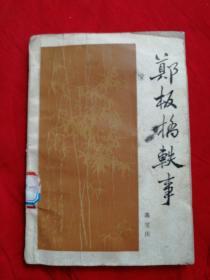 鄭板橋軼事